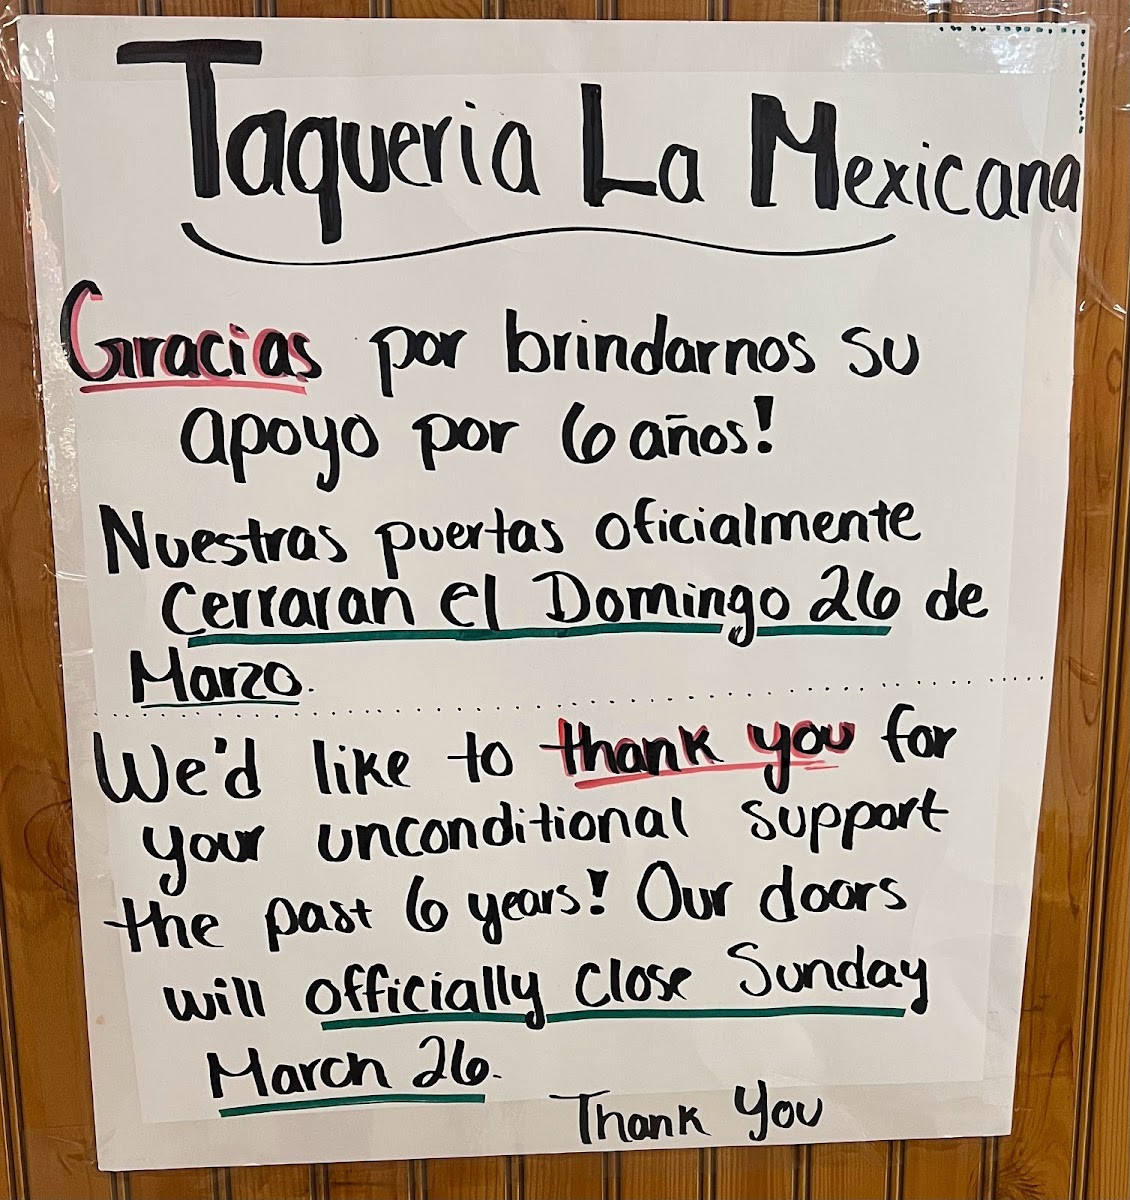 Taqueria La Mexicana
Gracias por brindarnos su
apoyo por 6 años!
Nuestras puertas oficialmente
cerraran el Domingo 26 de
Marzo.
We'd like to thank you for
your unconditional support
the past 6 years! Our doors
will officially close Sunday
March 26.
Thank You